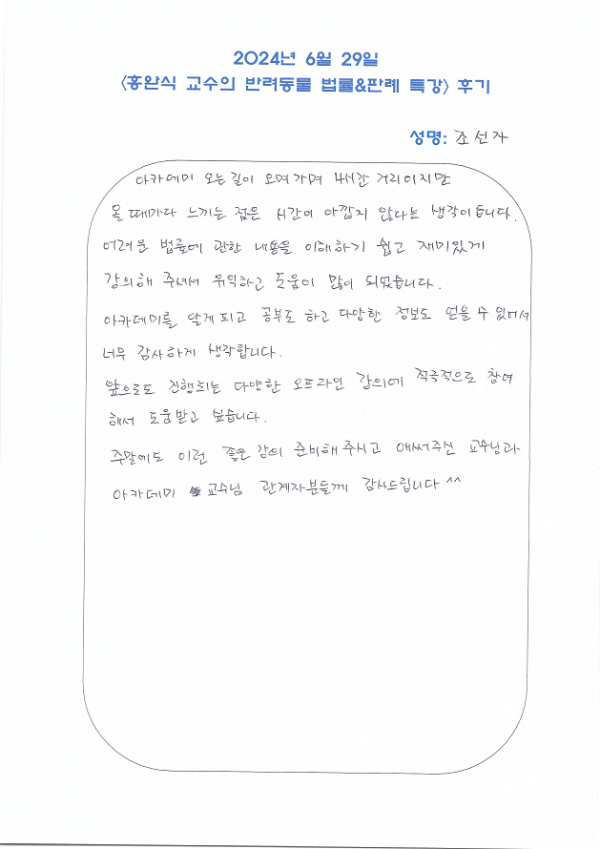 2024년 6월 29일
<홍완식 교수의 반려동물 법률&판례 특강> 후기
성명: 조선자
아카데미 오는길이 오며가며 4시간 거리이지만
올 때마다 느끼는 점은 시간이 아깝지 않다는 생각이듭니다.
어려운 법률에 관한 내용을 이해하기 쉽고 재미있게
강의해 주셔서 유익하고 도움이 많이 되었습니다.
아카데미를 알게되고 공부도 하고 다양한 정보도 얻을 수 있어서
너무 감사하게 생각합니다.
앞으로도 진행되는 다양한 오프라인 강의에 적극적으로 참여
해서 도움받고 싶습니다.
주말에도 이런 좋은 강의 준비해주시고 애써주신 교수님과
아카데미 교수님 관계자분들께 감사드립니다 ^^